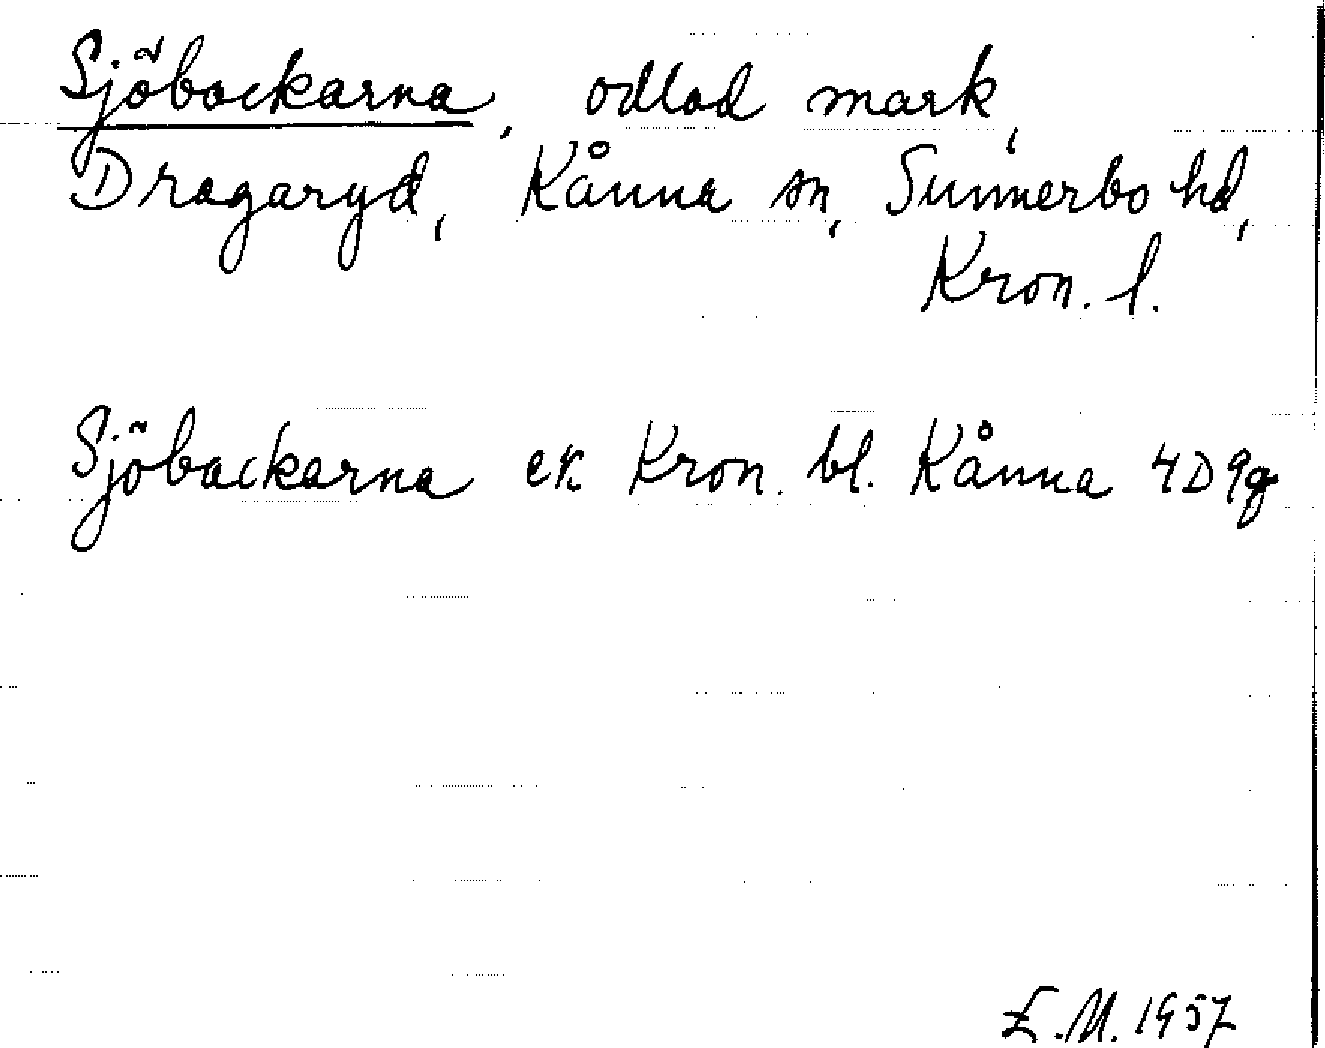 Sjöbackarna, odlad mark,
Dragaryd, Kånna sn, Sunnerbo hd,
Kron. l.
Sjöbackarna ek Kron. bl. Kånna 4D9g
E.M. 1957